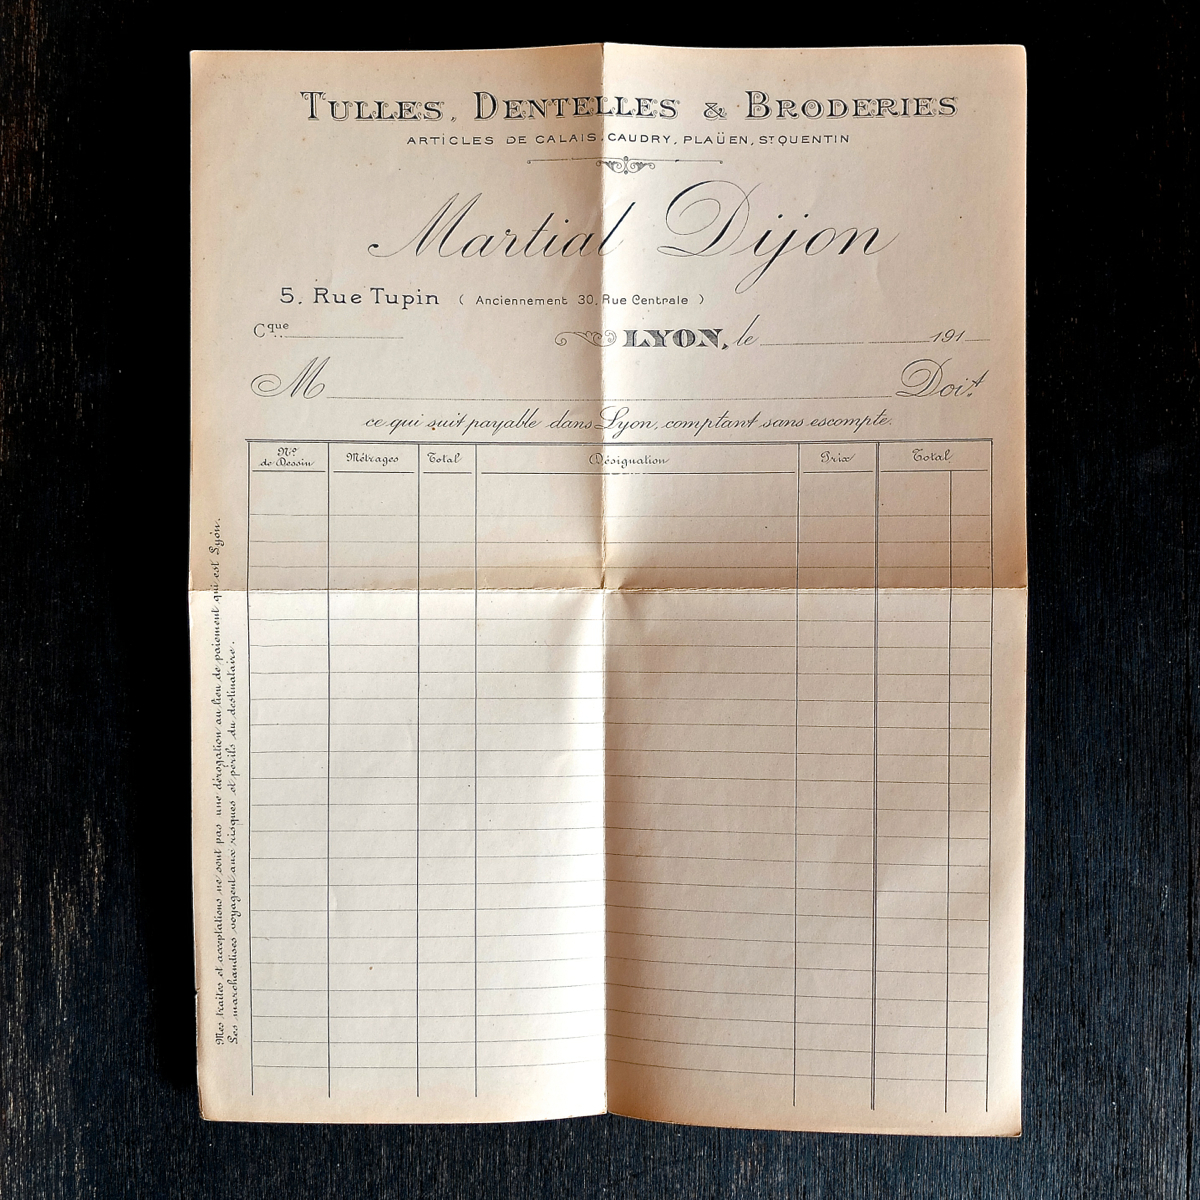 TULLES, DENTELLES & BRODERIES
ARTICLES DE CALAIS, CAUDRY, PLAÜEN, ST QUENTIN
Martial Dijon
5, Rue Tupin ( Anciennement 30, Rue Centrale )
Cque
LYON, le 191
M Doit
ce qui suit payable dans Lyon, comptant sans escompte.
No de Dessin Métrages Total Désignation Prix Total
Mes traites et acceptations ne sont pas une dérogation au lieu de paiement qui est Lyon.
Les marchandises voyagent aux risques et périls du destinataire.